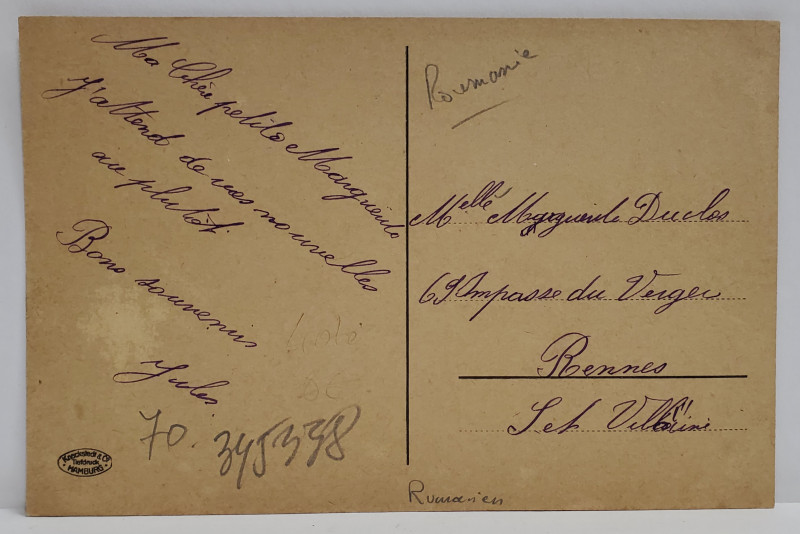 Ma Chère petite Marguerite
J'attend de vos nouvelles
au plutôt.
Bons souvenirs
Jules
70. 345338
Knackstedt & Co
Tiefdruck
HAMBURG
Roumanie
Melle Marguerite Duclos
69 Impasse du Verger
Rennes
Rumänien